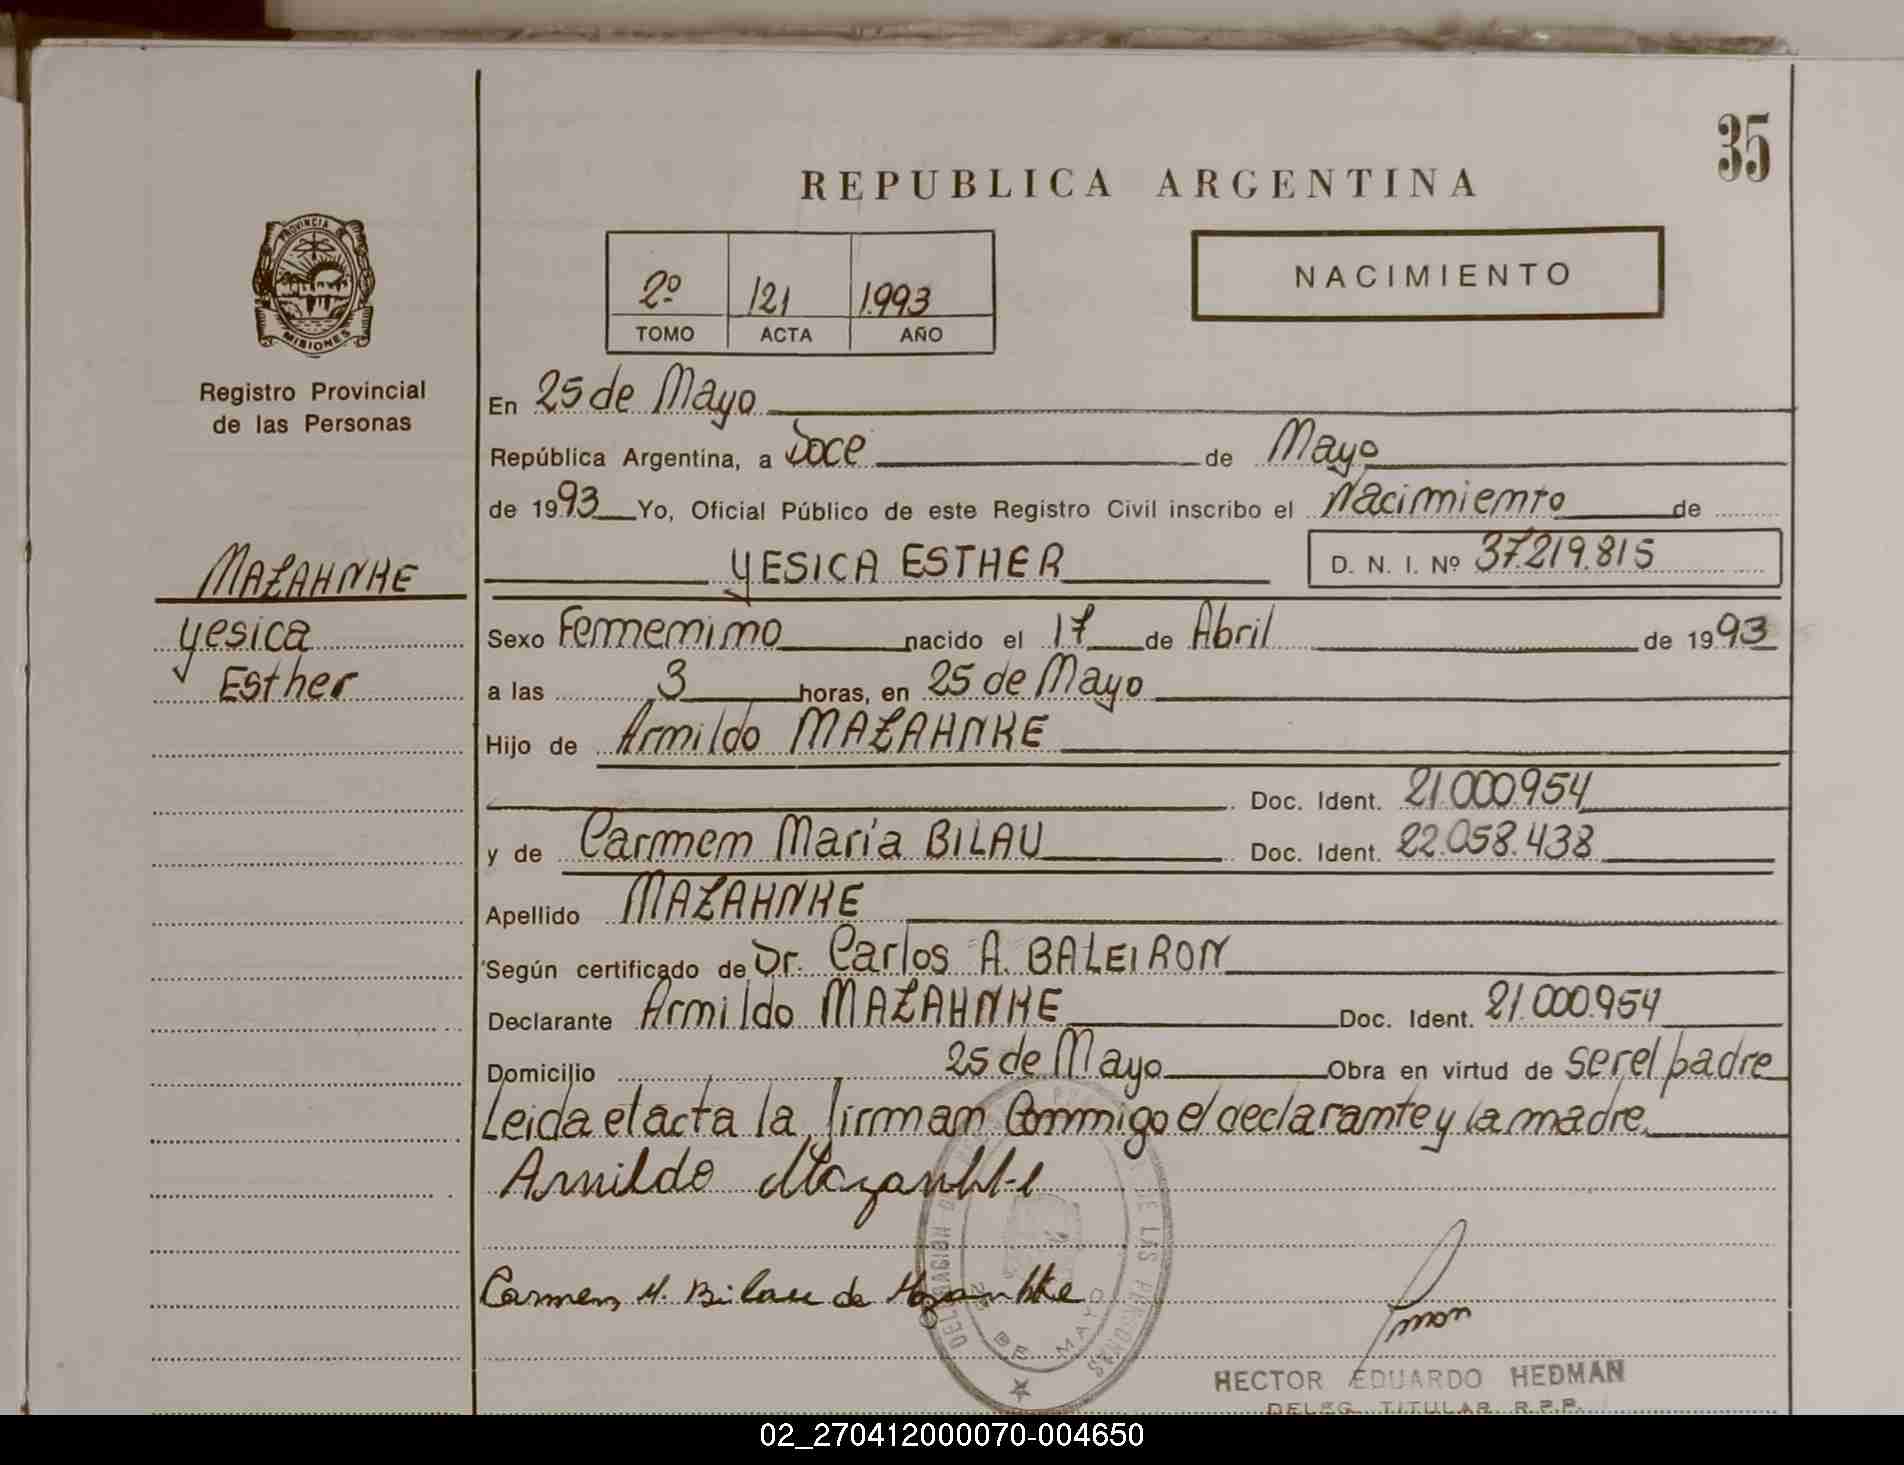 35
REPUBLICA ARGENTINA
PROVINCIA DE
MISIONES
2º 121 1.993
TOMO ACTA AÑO
NACIMIENTO
Registro Provincial
de las Personas
MAZAHNKE
Yesica
Esther
En 25 de Mayo
República Argentina, a Doce de Mayo
de 1993 Yo, Oficial Público de este Registro Civil inscribo el Nacimiento de
YESICA ESTHER D. N. I. Nº 37.219.815
Sexo Femenino nacido el 17 de Abril de 1993
a las 3 horas, en 25 de Mayo
Hijo de Arnildo MAZAHNKE
Doc. Ident. 21.000.954
y de Carmen María BILAU Doc. Ident. 22.058.438
Apellido MAZAHNKE
Según certificado de Dr. Carlos A. BALEIRON
Declarante Arnildo MAZAHNKE Doc. Ident. 21.000.954
Domicilio 25 de Mayo Obra en virtud de ser el padre
Leida el acta la firman conmigo el declarante y la madre.
Arnildo
Carmen M. Bilau de
DELEGACION DE LAS PERSONAS
25 DE MAYO
HECTOR EDUARDO HEDMAN
DELEG. TITULAR R.P.P.
02_270412000070-004650